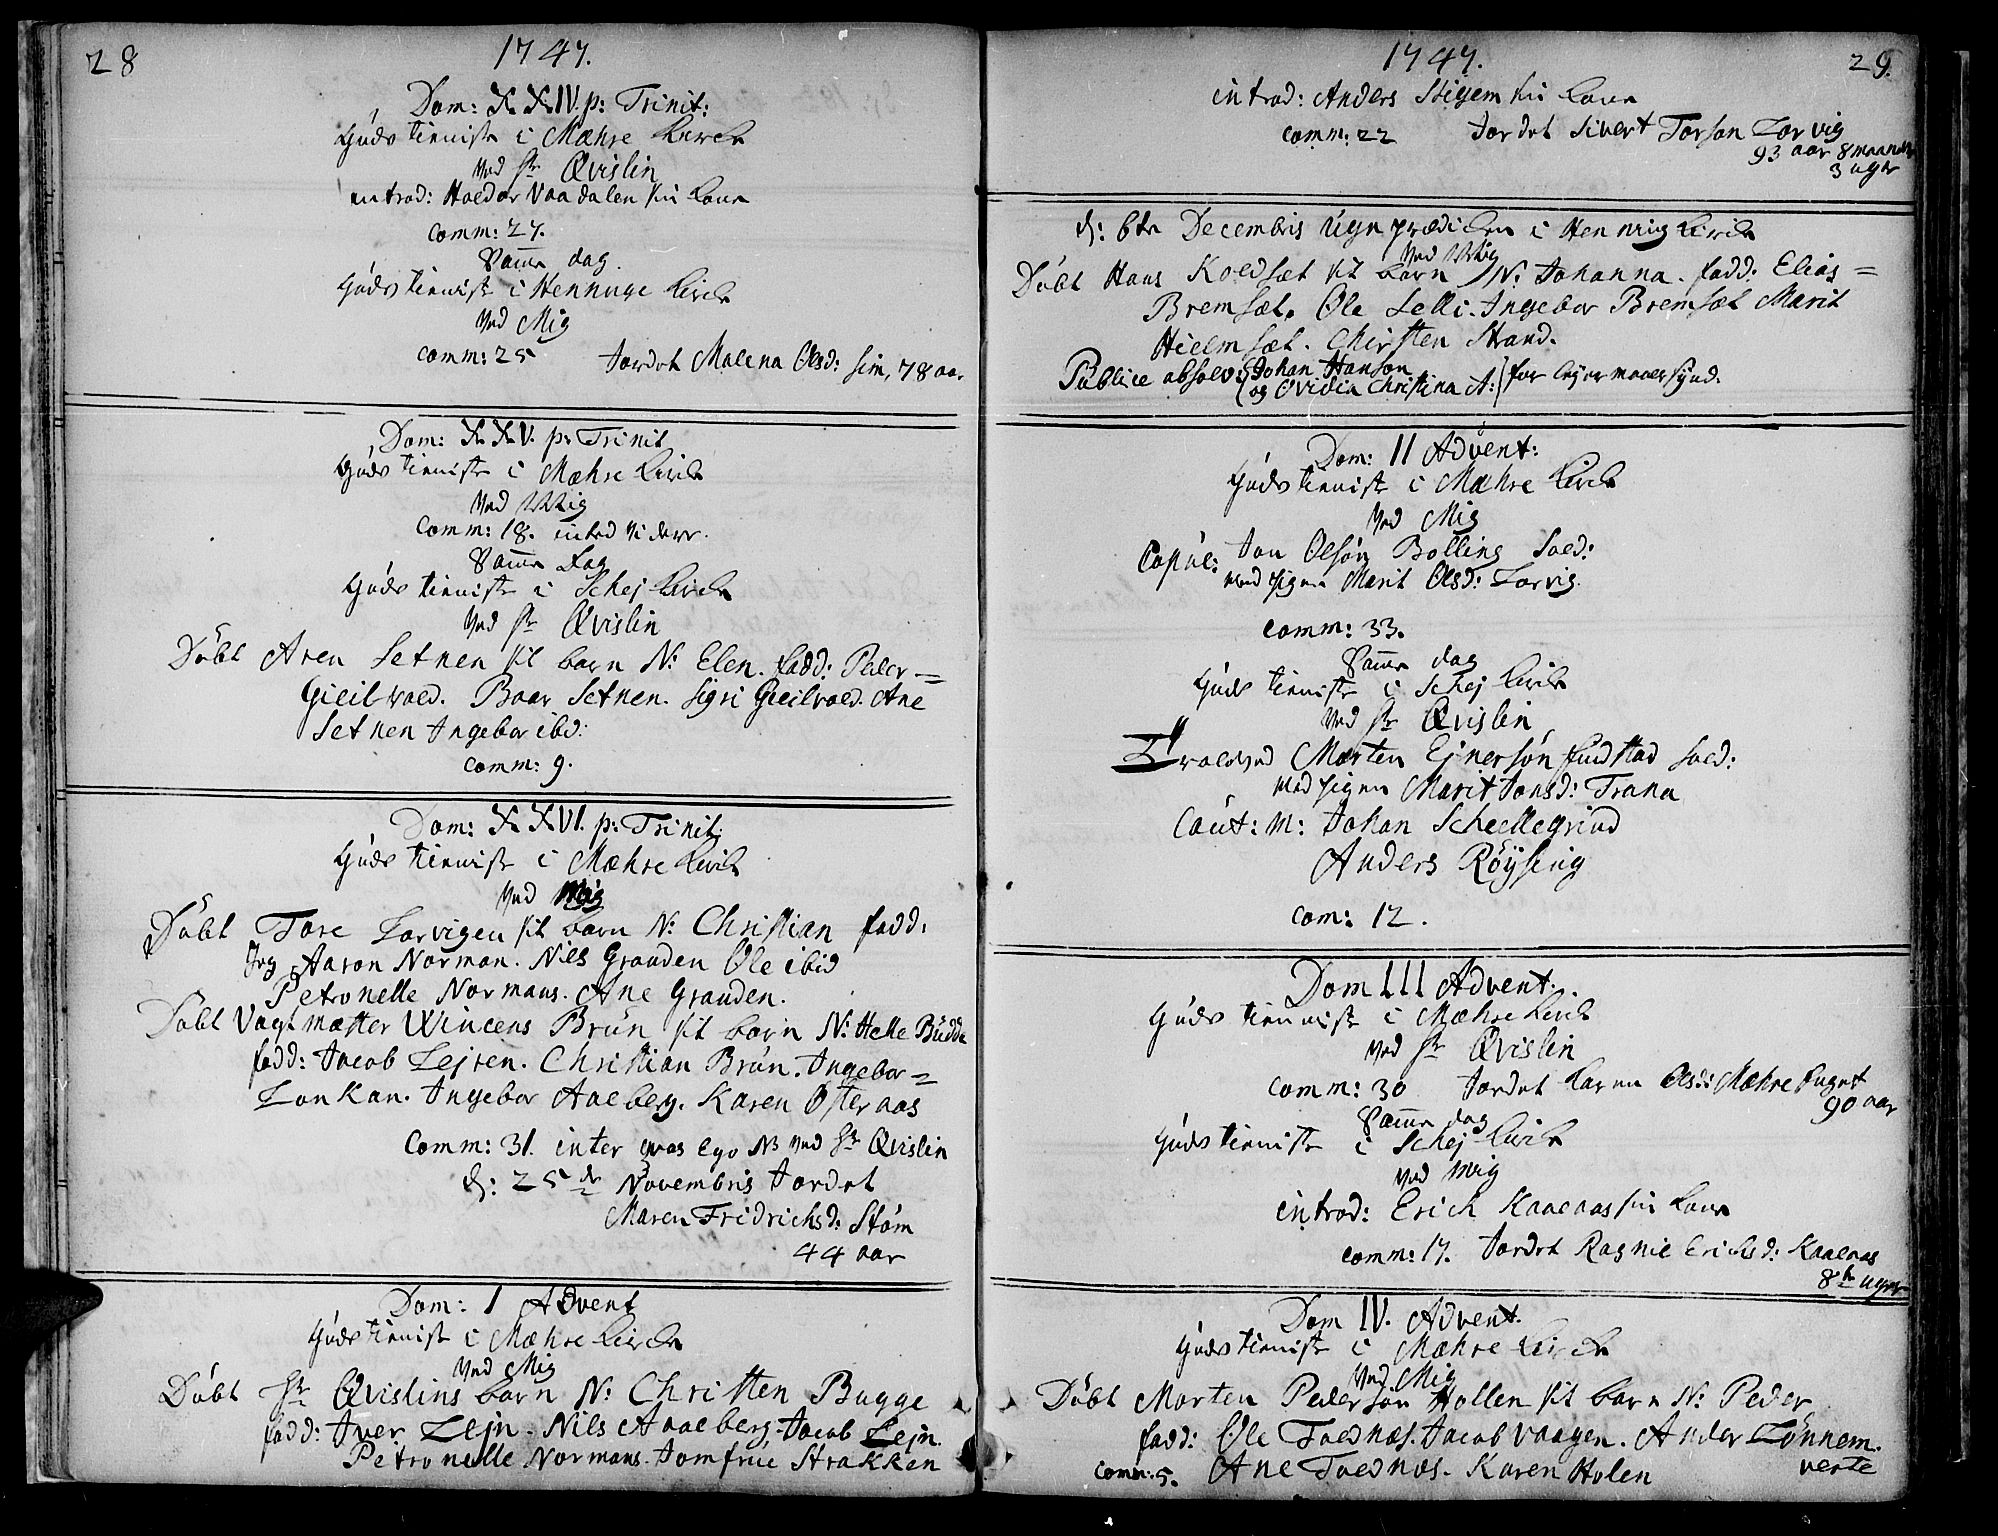 28
1747.
Dom: XXIV. p: Trinit:
Guds tieniste i Mæhre Kirche
Ved Hr Qvislin
introd: Haldor Vaadalen sin Kone
comm: 27.
Same dag
Guds tieniste i Hennuge Kirche
Ved Mig
comm: 25 Jordet Malena Olsd: sim, 78 aar
Dom: XXV. p: Trinit
Guds tieniste i Mæhre Kirche
Ved Mig
Comm: 18. inted videre.
Same Dag
Guds tieniste i Schej Kirche
Ved Hr Qvislin
Döbt Aren Setnen sit barn N: Elen. fadd: Peder
Gieilvold. Baar Setnen. Sigri Gieilvold. Ane
Setnen Ingebor ibd:
comm: 9.
Dom: XXVI. p: Trinit:
Guds tieniste i Mæhre Kirche
Ved Mig
Döbt Tore Lorvigen sit barn N: Christian fadd:
Jeg Aaron Norman. Nils Grauden Ole ibid
Petronelle Normans. Ane Grauden.
Döbt Vagtmæster Wincens Brun sit barn N: Helle Budde
fadd: Jacob Lejren. Christian Brun. Ingebor
Lonkan. Ingebor Aaeberg. Karen Österaas
Comm: 31. inter qvos Ego NB ved Hr Qvislin
d: 25de Novembris Jordet
Maren Fridrichsd: Stöm
44 aar
Dom: I Advent
Guds tieniste i Mæhre Kirche
Ved Mig
Döbt Hr Qvislins barn N: Christen Bugge
fadd: Iver Lejn. Nils Aaaeberg. Jacob Lejn.
Petronelle Normans. Jomfrue Strakken
1747.
29.
introd: Anders Stigem sin Kone
comm: 22 Jordet Sivert Torson Lorvig
93 aar 8 maaneder
3 uger
d: 6te Decembris Ugeprædichen i Henning Kirche
Ved Mig
Döbt Hans Koldsæt sit barn N: Johanna. fadd: Elias
Bremsæt. Ole Lelli. Ingebor Bremsæt Marit
Hielmsæt. Christen Strand.
Publice absolv: Johan Hanson
og Ovidia Christina A: for leyermaaer synd.
Dom: II Advent:
Guds tieniste i Mæhre Kirche
Ved Mig
Copul: Jon Olsön Bolling Sold:
med pigen Marit Olsd: Lorvig.
comm: 33.
Same dag
Guds tieniste i Schej Kirche
Ved Hr Qvislin
Troloved Morten Ejnersön findstad sold:
med pigen Marit Jonsd: Trana
Caut: M: Johan Schellegrind
Anders Röysing
com: 12.
Dom III Advent.
Guds tieniste i Mæhre Kirche
Ved Hr Qvislin
comm: 30 Jordet Karen Olsd: Mæhre
90 aar
Same dag
Guds tieniste i Schej Kirche
Ved Mig
introd: Erich Kaalaas sin Kone
comm: 17. Jordet Ragnie Erichsd: Kaalaas
8te uger
Dom IV. Advent.
Guds tieniste i Mæhre Kirche
Ved Mig
Döbt Morten Pedersön Hollen sit barn N: Peder
fadd: Ole Foldnæs. Jacob Vaagen. Ander Lönnem.
comm: 5. Ane Foldnæs. Karen Holen
verte